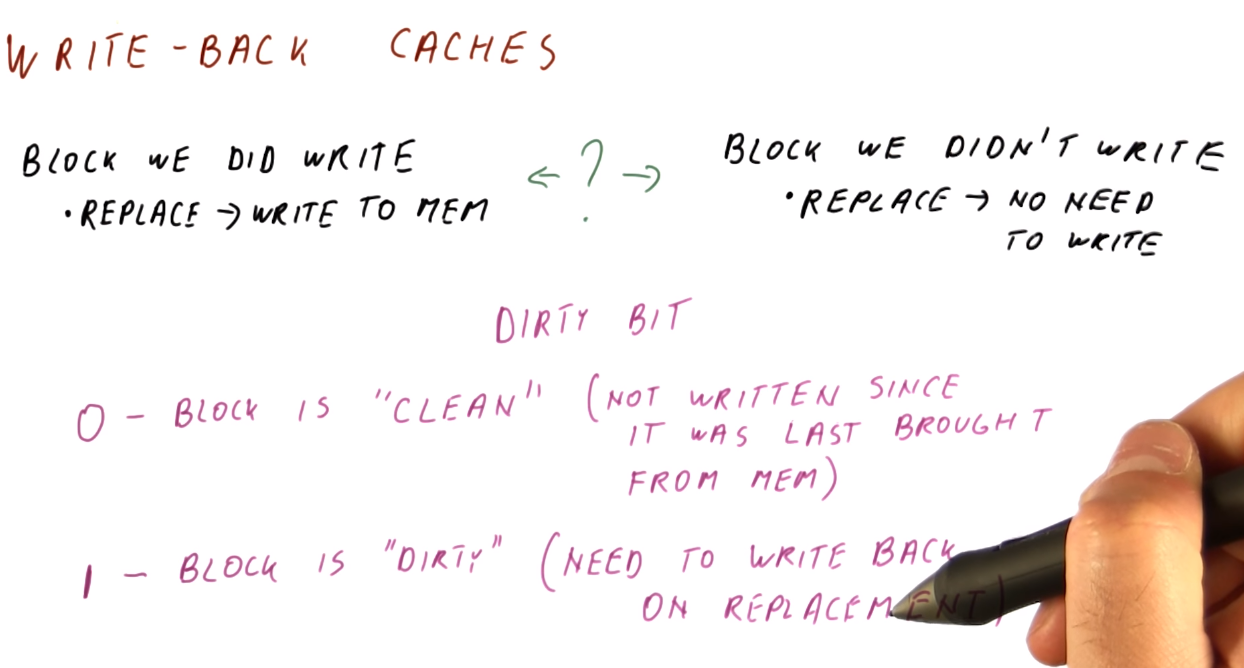 WRITE-BACK CACHES
BLOCK WE DID WRITE
• REPLACE → WRITE TO MEM
← ? →
BLOCK WE DIDN'T WRITE
• REPLACE → NO NEED
TO WRITE
DIRTY BIT
0 – BLOCK IS "CLEAN" (NOT WRITTEN SINCE
IT WAS LAST BROUGHT
FROM MEM)
1 – BLOCK IS "DIRTY" (NEED TO WRITE BACK
ON REPLACEMENT)